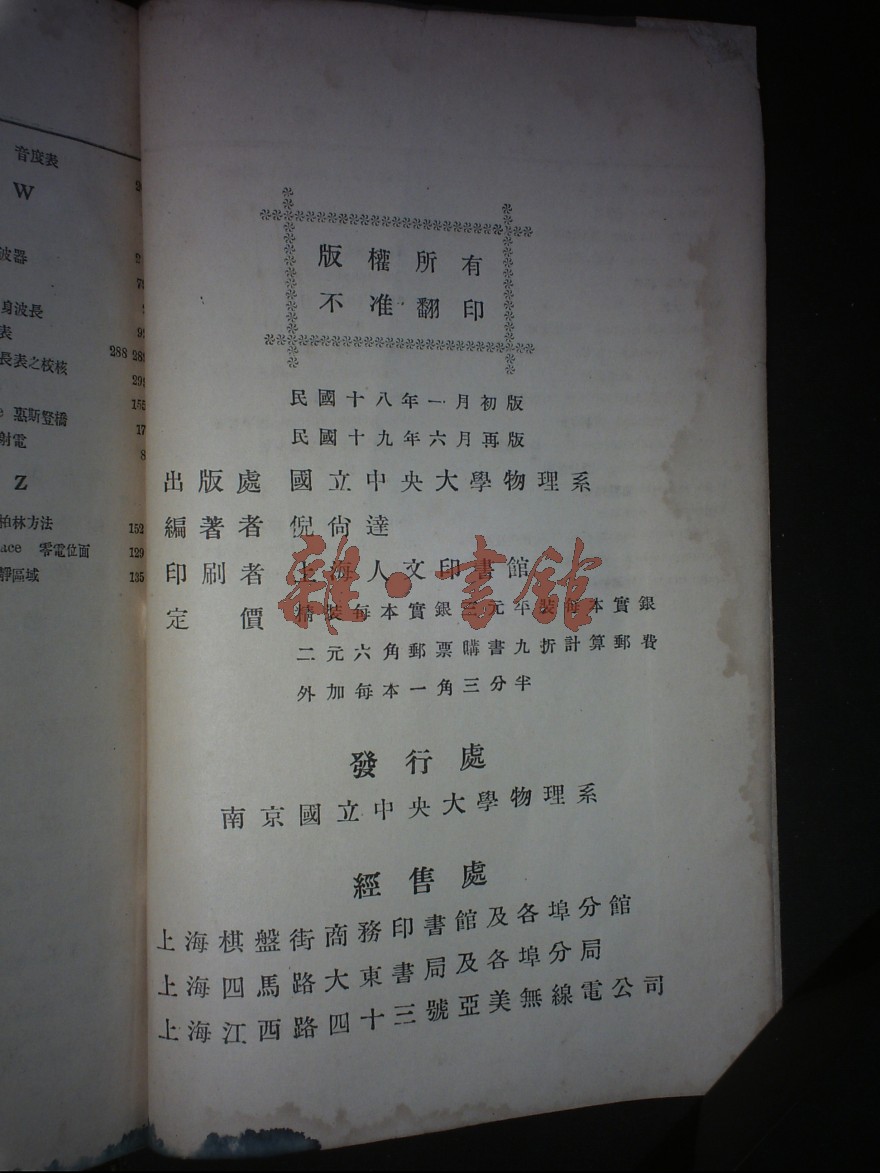 音度表
W
波器
身波長
表
288
長表之校核
惠斯登橋
155
射電
17
Z
柏林方法
152
ace 零電位面
129
靜區域
135
版權所有
不准翻印
民國十八年一月初版
民國十九年六月再版
出版處 國立中央大學物理系
編著者 倪尙達
印刷者 上海人文印書館
定價 精裝每本實銀三元平裝每本實銀
二元六角郵票購書九折計算郵費
外加每本一角三分半
發行處
南京國立中央大學物理系
經售處
上海棋盤街商務印書館及各埠分館
上海四馬路大東書局及各埠分局
上海江西路四十三號亞美無線電公司
雜·書館